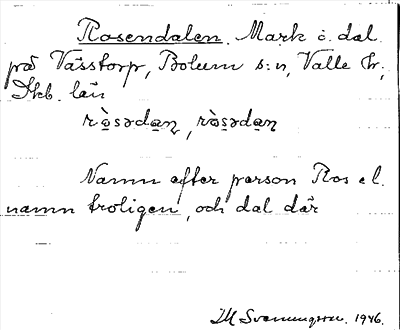 Rosendalen. Mark o. dal
på Västorp, Bolum s:n, Valle hr;
Skb. län
Namn efter person Ros el.
namn troligen, och dal där
Svenungsson. 1946.